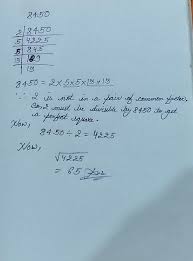 8450
2 | 8450
5 | 4225
5 | 845
13 | 169
13
8450 = 2 × 5 × 5 × 13 × 13
∵ 2 is not in a pair of common factor.
So, 2 must be divisible by 8450 to get
a perfect square.
Now,
8450 ÷ 2 = 4225
Now,
√4225
= 65